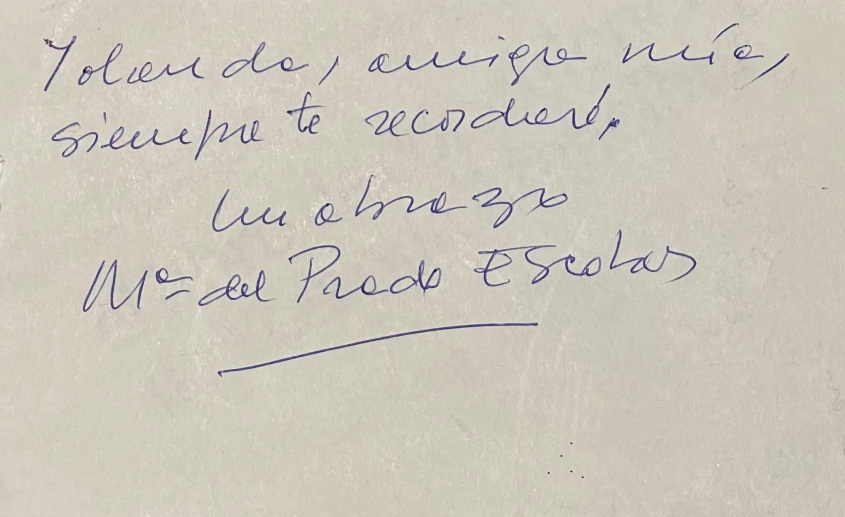 Yolanda, amiga mía,
siempre te recordaré,
Un abrazo
Mª del Prado Escobar